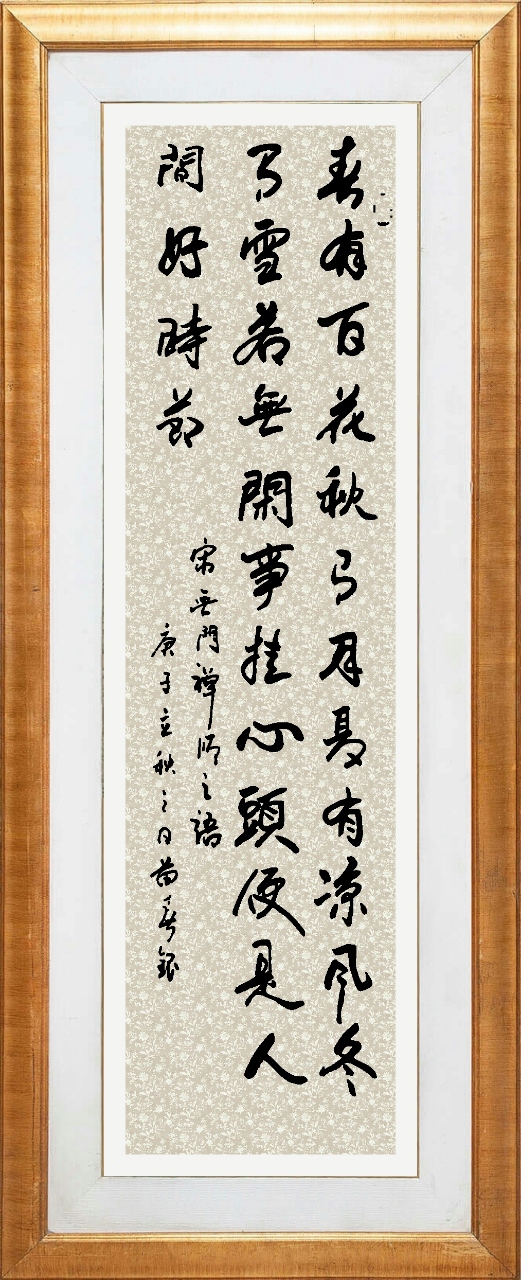 春有百花秋有月夏有凉风冬
有雪若無閑事挂心頭便是人
間好時節
宋無門禅师之語
庚子立秋之日苗春銀